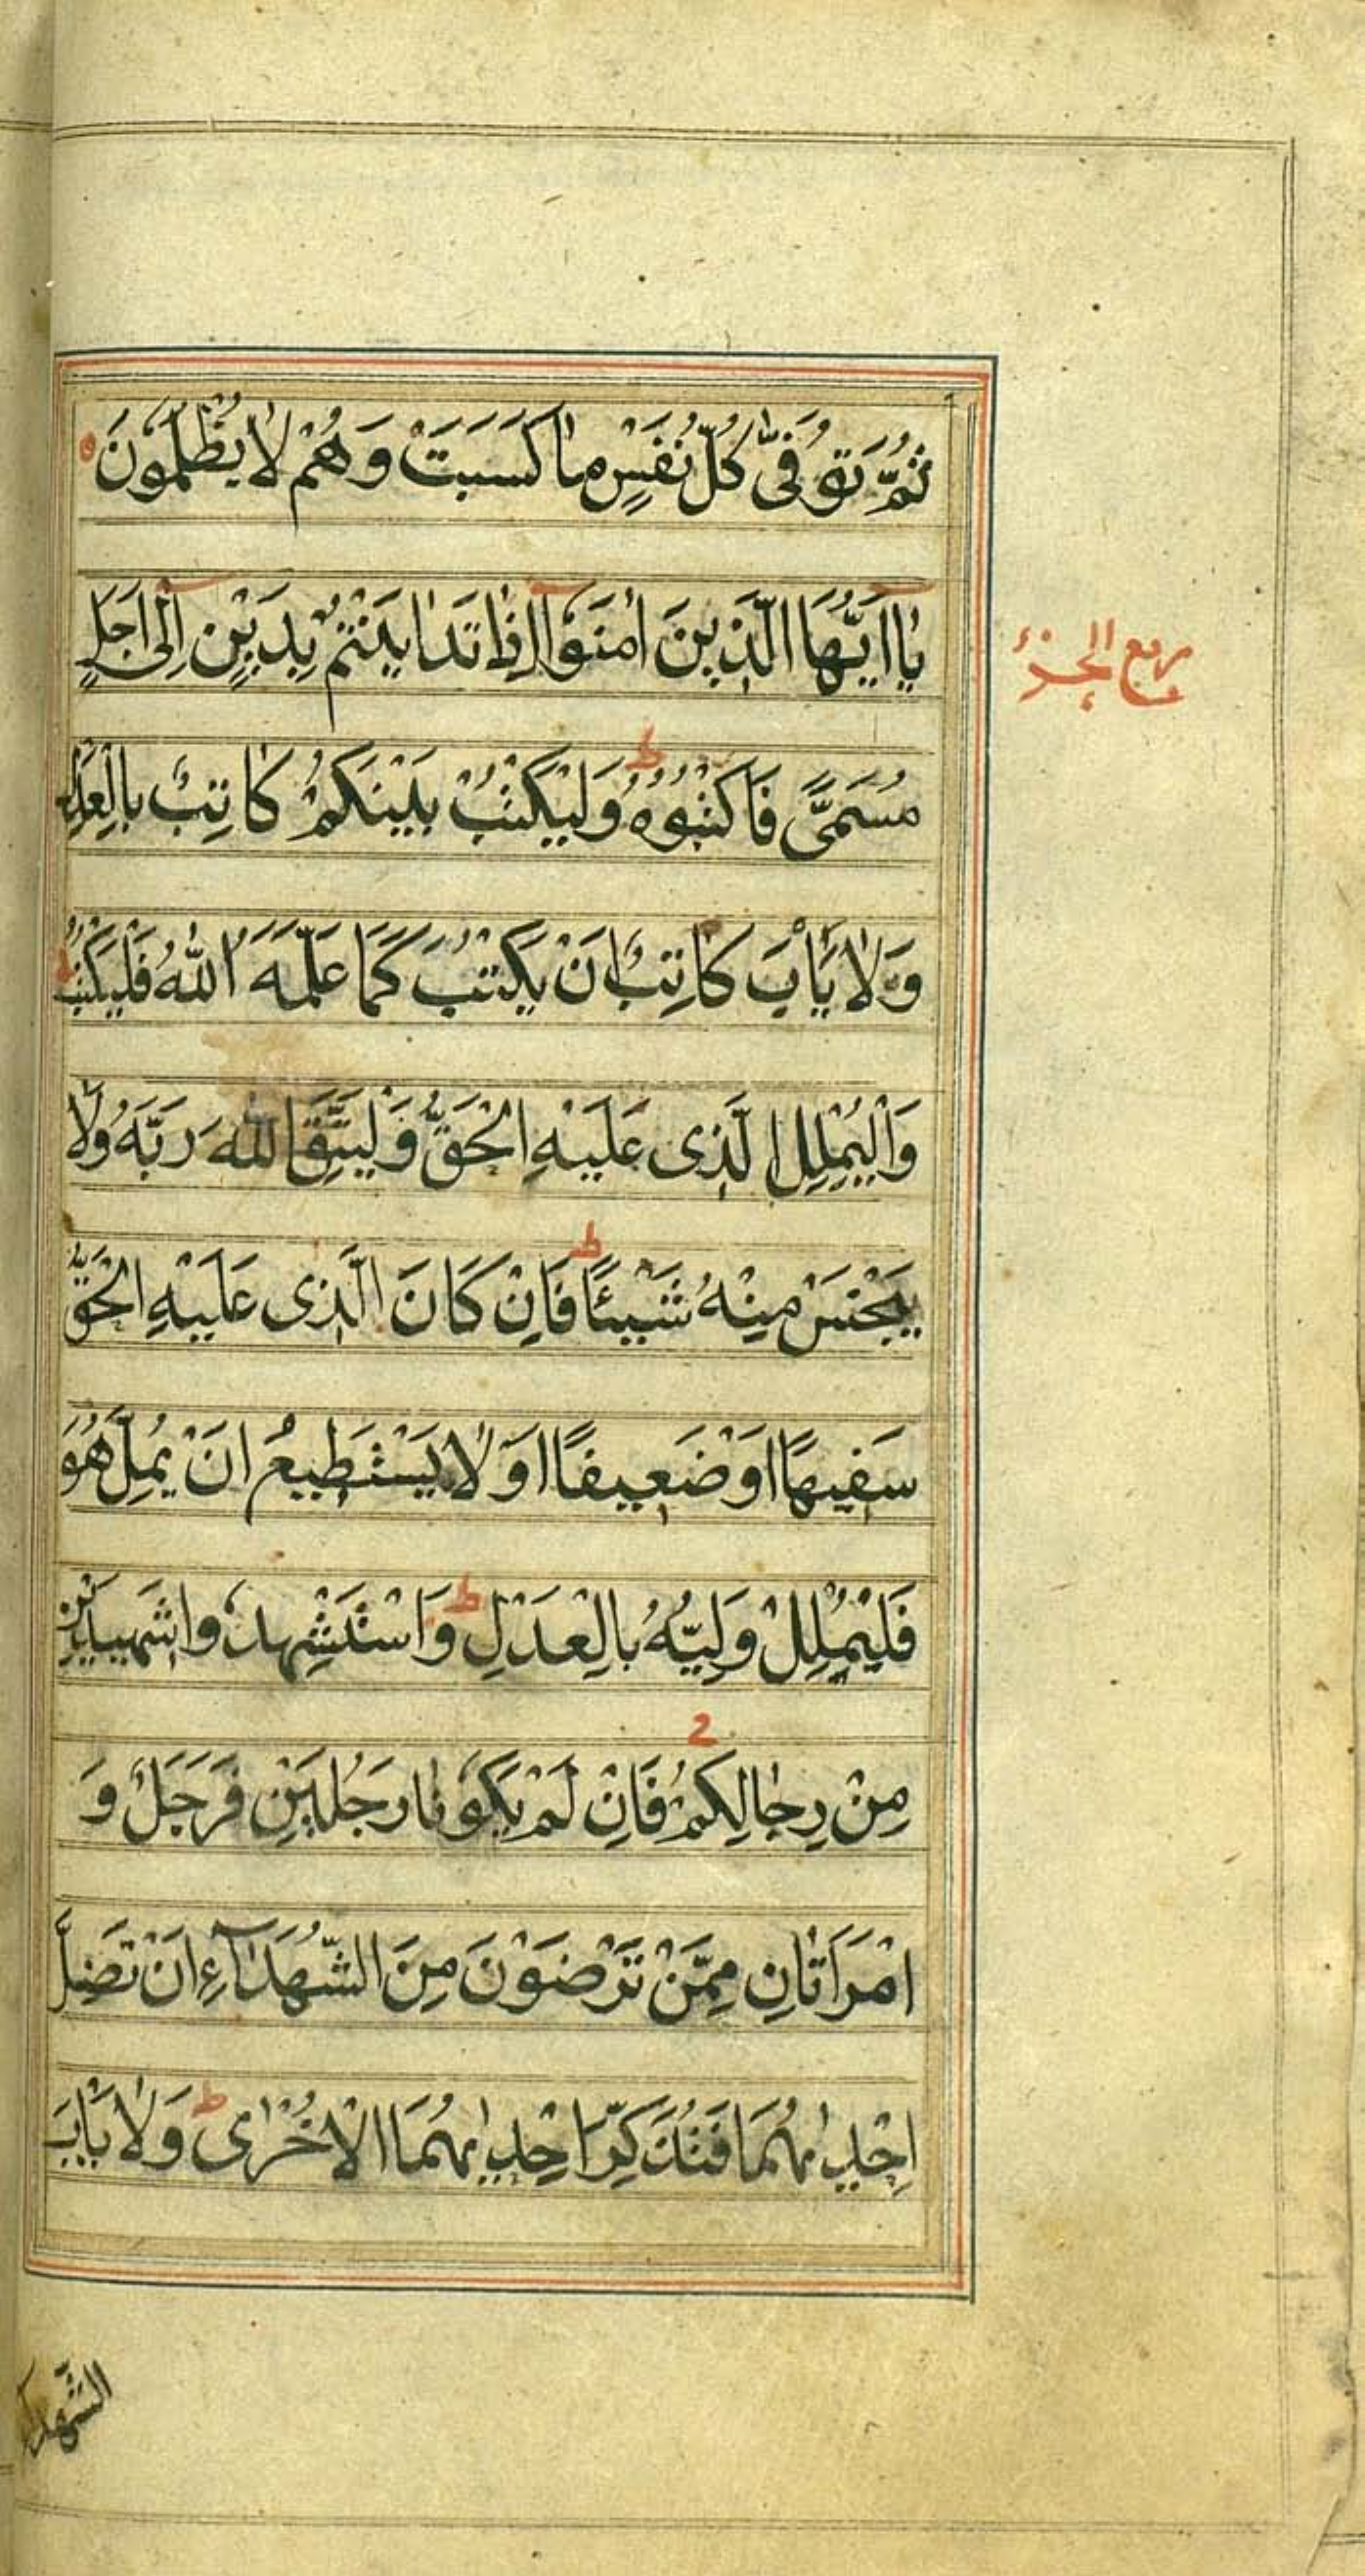 ثُمَّ تُوَفّٰى كُلُّ نَفْسٍ مٰا كَسَبَتْ وَهُمْ لٰا يُظْلَمُونَ
يٰا اَيُّهَا الَّذِينَ اٰمَنُوا اِذٰا تَدٰايَنْتُمْ بِدَيْنٍ اِلٰى اَجَلٍ
ربع الجزء
مُسَمًّى فَاكْتُبُوهُ ط وَلْيَكْتُبْ بَيْنَكُمْ كٰاتِبٌ بِالْعَدْلِ
وَلٰا يَأْبَ كٰاتِبٌ اَنْ يَكْتُبَ كَمٰا عَلَّمَهُ اللّٰهُ فَلْيَكْتُبْ
وَالْيُمْلِلِ الَّذِى عَلَيْهِ الْحَقُّ وَلْيَتَّقِ اللّٰهَ رَبَّهُ وَلٰا
يَبْخَسْ مِنْهُ شَيْئًا ط فَاِنْ كَانَ الَّذِى عَلَيْهِ الْحَقُّ
سَفِيهًا اَوْ ضَعِيفًا اَوْ لٰا يَسْتَطِيعُ اَنْ يُمِلَّ هُوَ
فَلْيُمْلِلْ وَلِيُّهُ بِالْعَدْلِ ط وَاسْتَشْهِدُوا شَهِيدَيْنِ
مِنْ رِجٰالِكُمْ فَاِنْ لَمْ يَكُونٰا رَجُلَيْنِ فَرَجُلٌ وَ
امْرَاَتٰانِ مِمَّنْ تَرْضَوْنَ مِنَ الشُّهَدٰٓاءِ اَنْ تَضِلَّ
اِحْدٰيهُمَا فَتُذَكِّرَ اِحْدٰيهُمَا الْاُخْرٰى ط وَلٰا يَأْبَ
الشُّهَدٰا